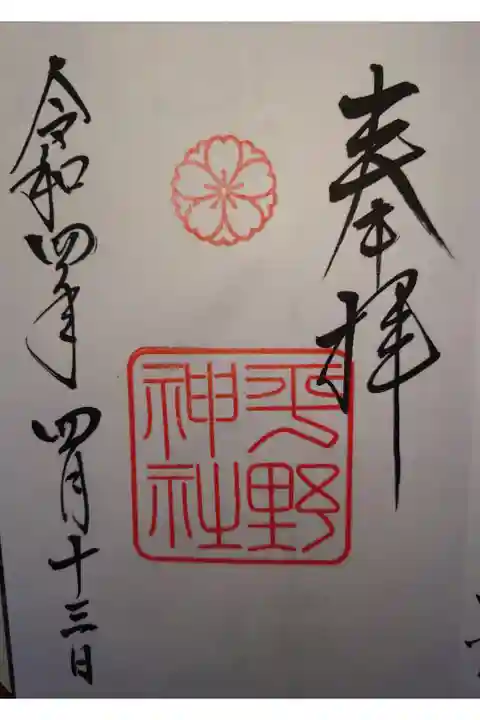 奉拝
平野
神社
令和四年四月十三日